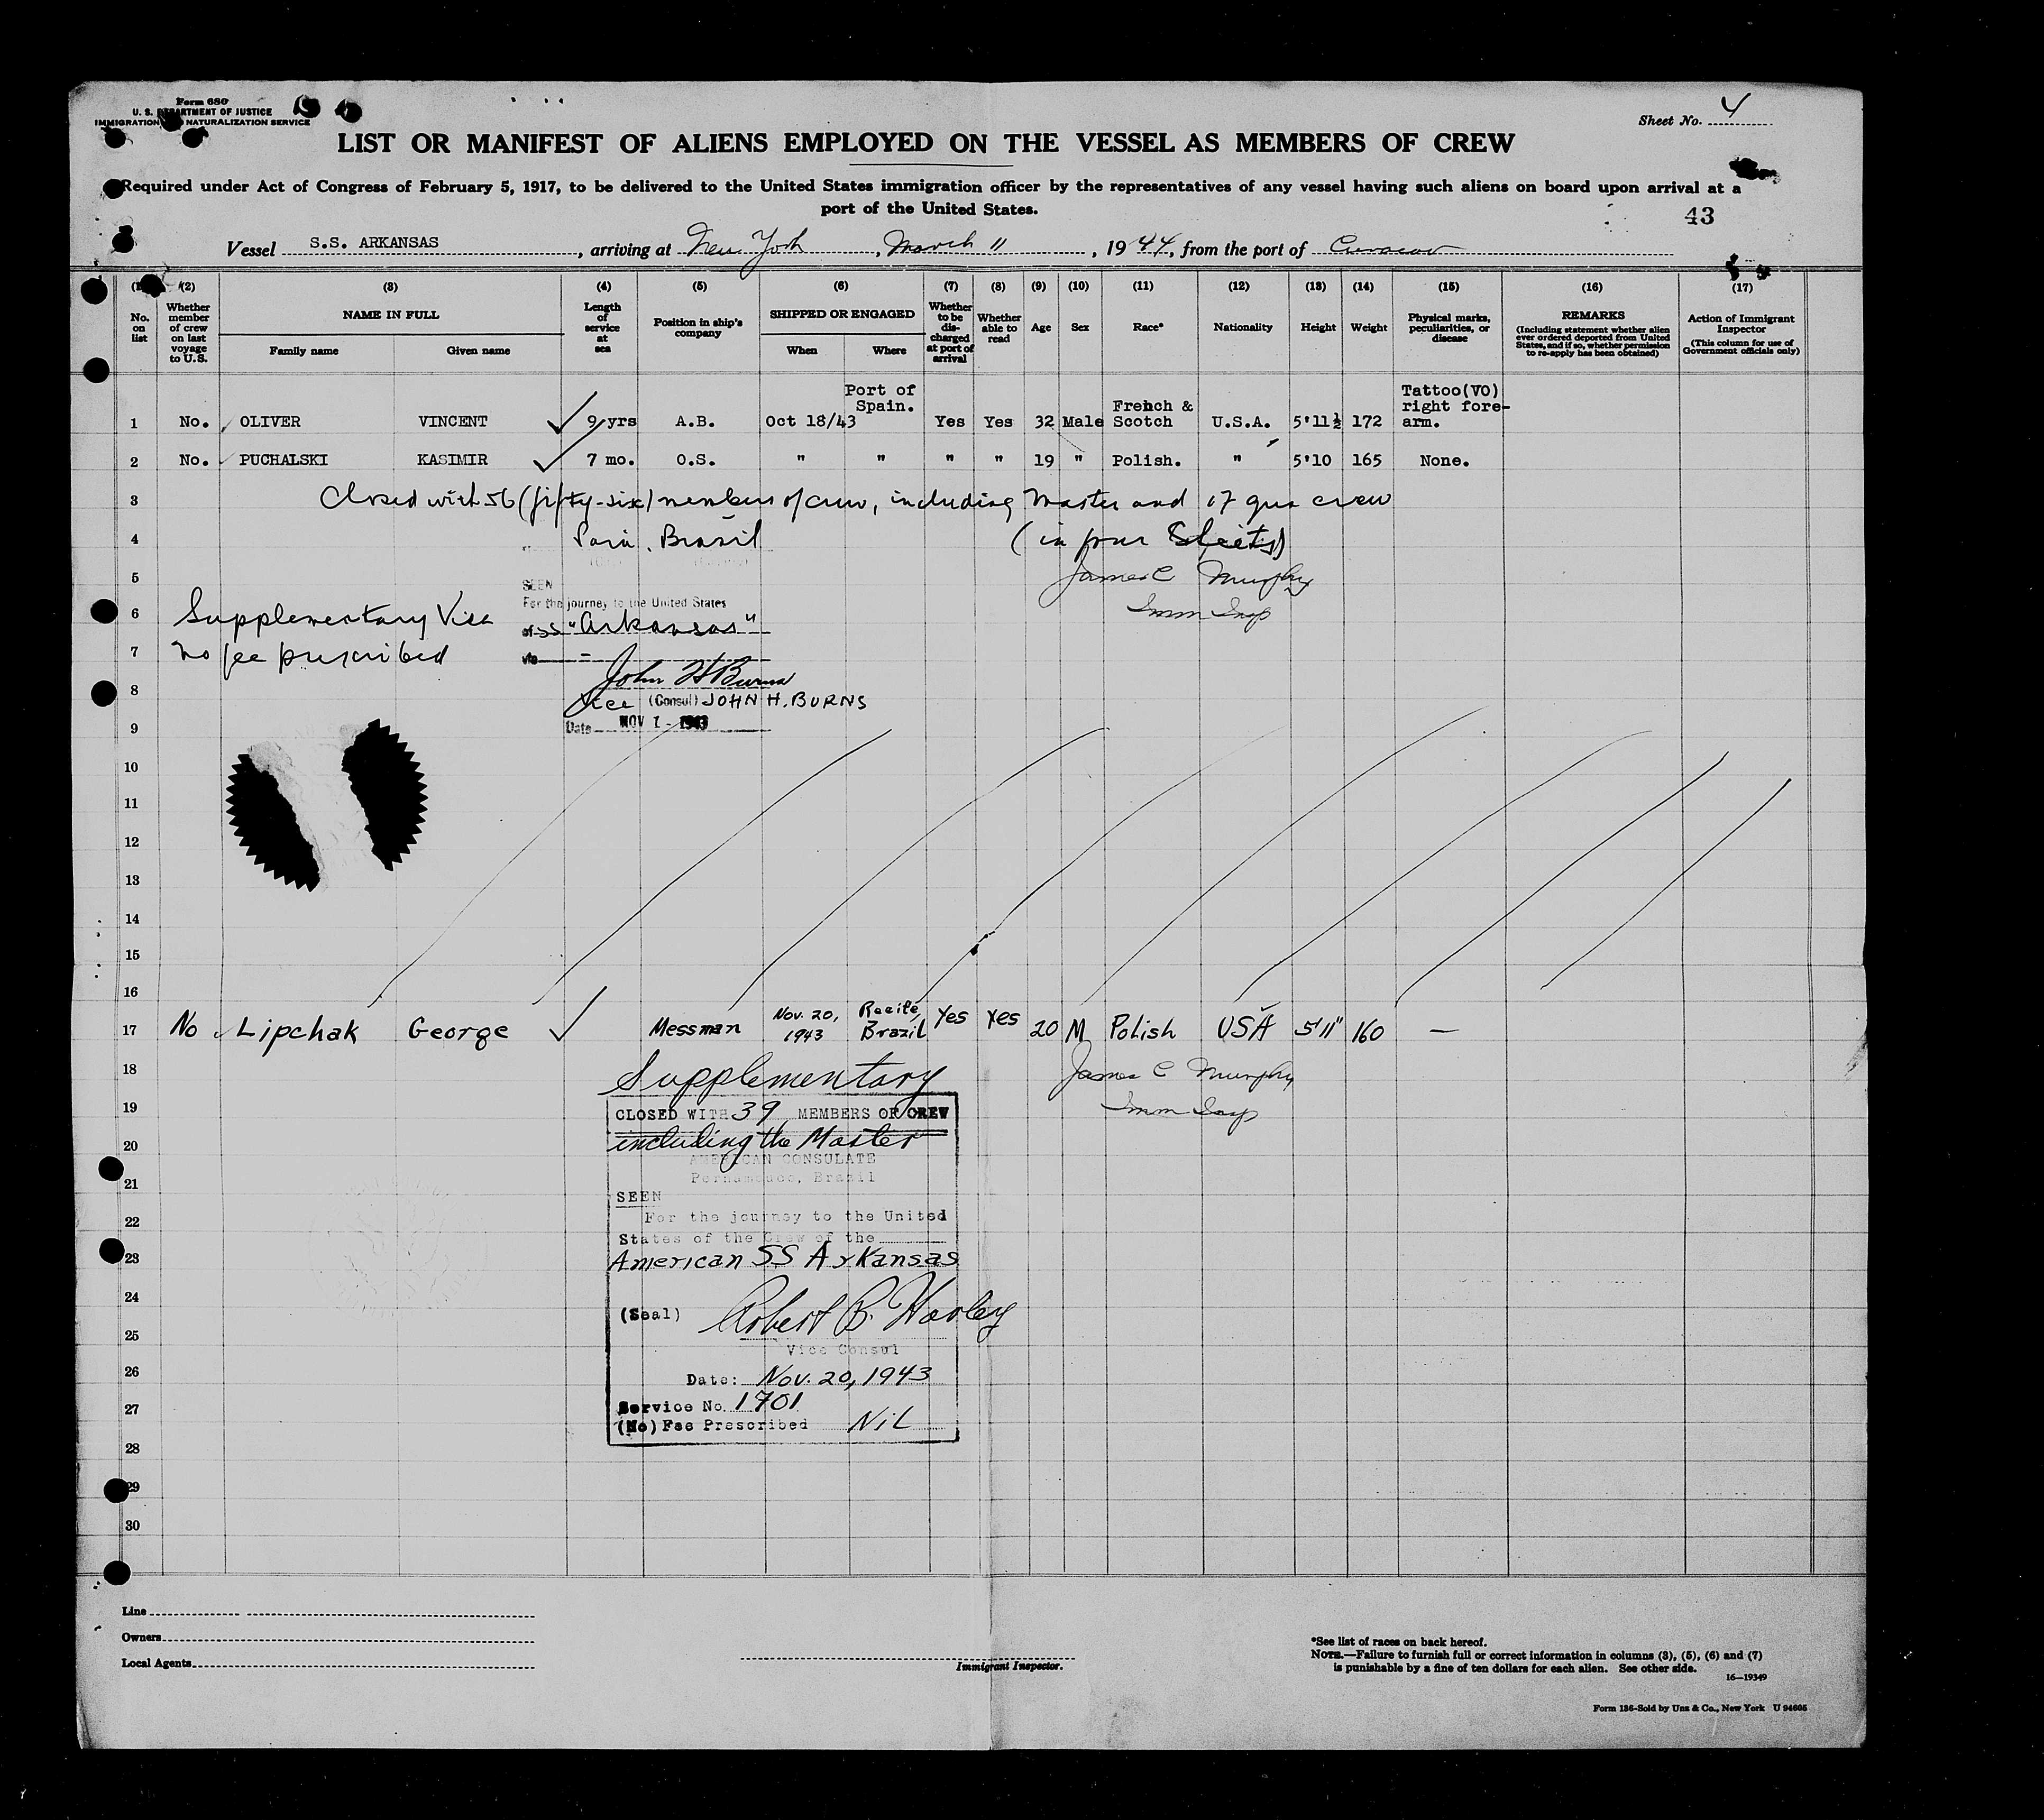 Form 680
U. S. DEPARTMENT OF JUSTICE
IMMIGRATION NATURALIZATION SERVICE
Sheet No. 4
LIST OR MANIFEST OF ALIENS EMPLOYED ON THE VESSEL AS MEMBERS OF CREW
Required under Act of Congress of February 5, 1917, to be delivered to the United States immigration officer by the representatives of any vessel having such aliens on board upon arrival at a
port of the United States.
43
Vessel S.S. ARKANSAS, arriving at New York, March 11, 1944, from the port of Curacao
(2) (3) (4) (5) (6) (7) (8) (9) (10) (11) (12) (13) (14) (15) (16) (17)
No. on list
Whether member of crew on last voyage to U.S.
NAME IN FULL
Family name Given name
Length of service at sea
Position in ship's company
SHIPPED OR ENGAGED
When Where
Whether to be discharged at port of arrival
Whether able to read
Age
Sex
Race*
Nationality
Height
Weight
Physical marks, peculiarities, or disease
REMARKS
(Including statement whether alien ever ordered deported from United States, and if so, whether permission to re-apply has been obtained)
Action of Immigrant Inspector
(This column for use of Government officials only)
1 No. OLIVER VINCENT 9 yrs A.B. Oct 18/43 Port of Spain. Yes Yes 32 Male French & Scotch U.S.A. 5'11½ 172 Tattoo(VO) right fore-arm.
2 No. PUCHALSKI KASIMIR 7 mo. O.S. " " " " 19 " Polish. " 5'10 165 None.
3 Closed with 56 (fifty-six) members of crew, including Master and 17 gun crew
4 Para, Brasil (in four Sheets)
5 SEEN James C Murphy
For the journey to the United States
6 Supplementary Visa of SS "Arkansas" Imm Insp
7 no fee prescribed via -
John H Burns
8 Vice (Consul) JOHN H. BURNS
9 Date NOV 1 - 1943
10
11
12
13
14
15
16
17 No Lipchak George Messman Nov. 20, 1943 Recife, Brazil Yes Yes 20 M Polish USA 5'11" 160 —
18 Supplementary James C Murphy
19 CLOSED WITH 39 MEMBERS OF CREW Imm Insp
20 including the Master
AMERICAN CONSULATE
21 Pernambuco, Brazil
SEEN
22 For the journey to the United
States of the Crew of the
23 American SS Arkansas
24 (Seal) Robert B. Harley
25
Vice Consul
26 Date: Nov. 20, 1943
27 Service No. 1701
(No) Fee Prescribed Nil
28
29
30
Line
Owners
Local Agents
Immigrant Inspector.
*See list of races on back hereof.
NOTE.—Failure to furnish full or correct information in columns (3), (5), (6) and (7)
is punishable by a fine of ten dollars for each alien. See other side.
16—19349
Form 136-Sold by Unz & Co., New York U 94605